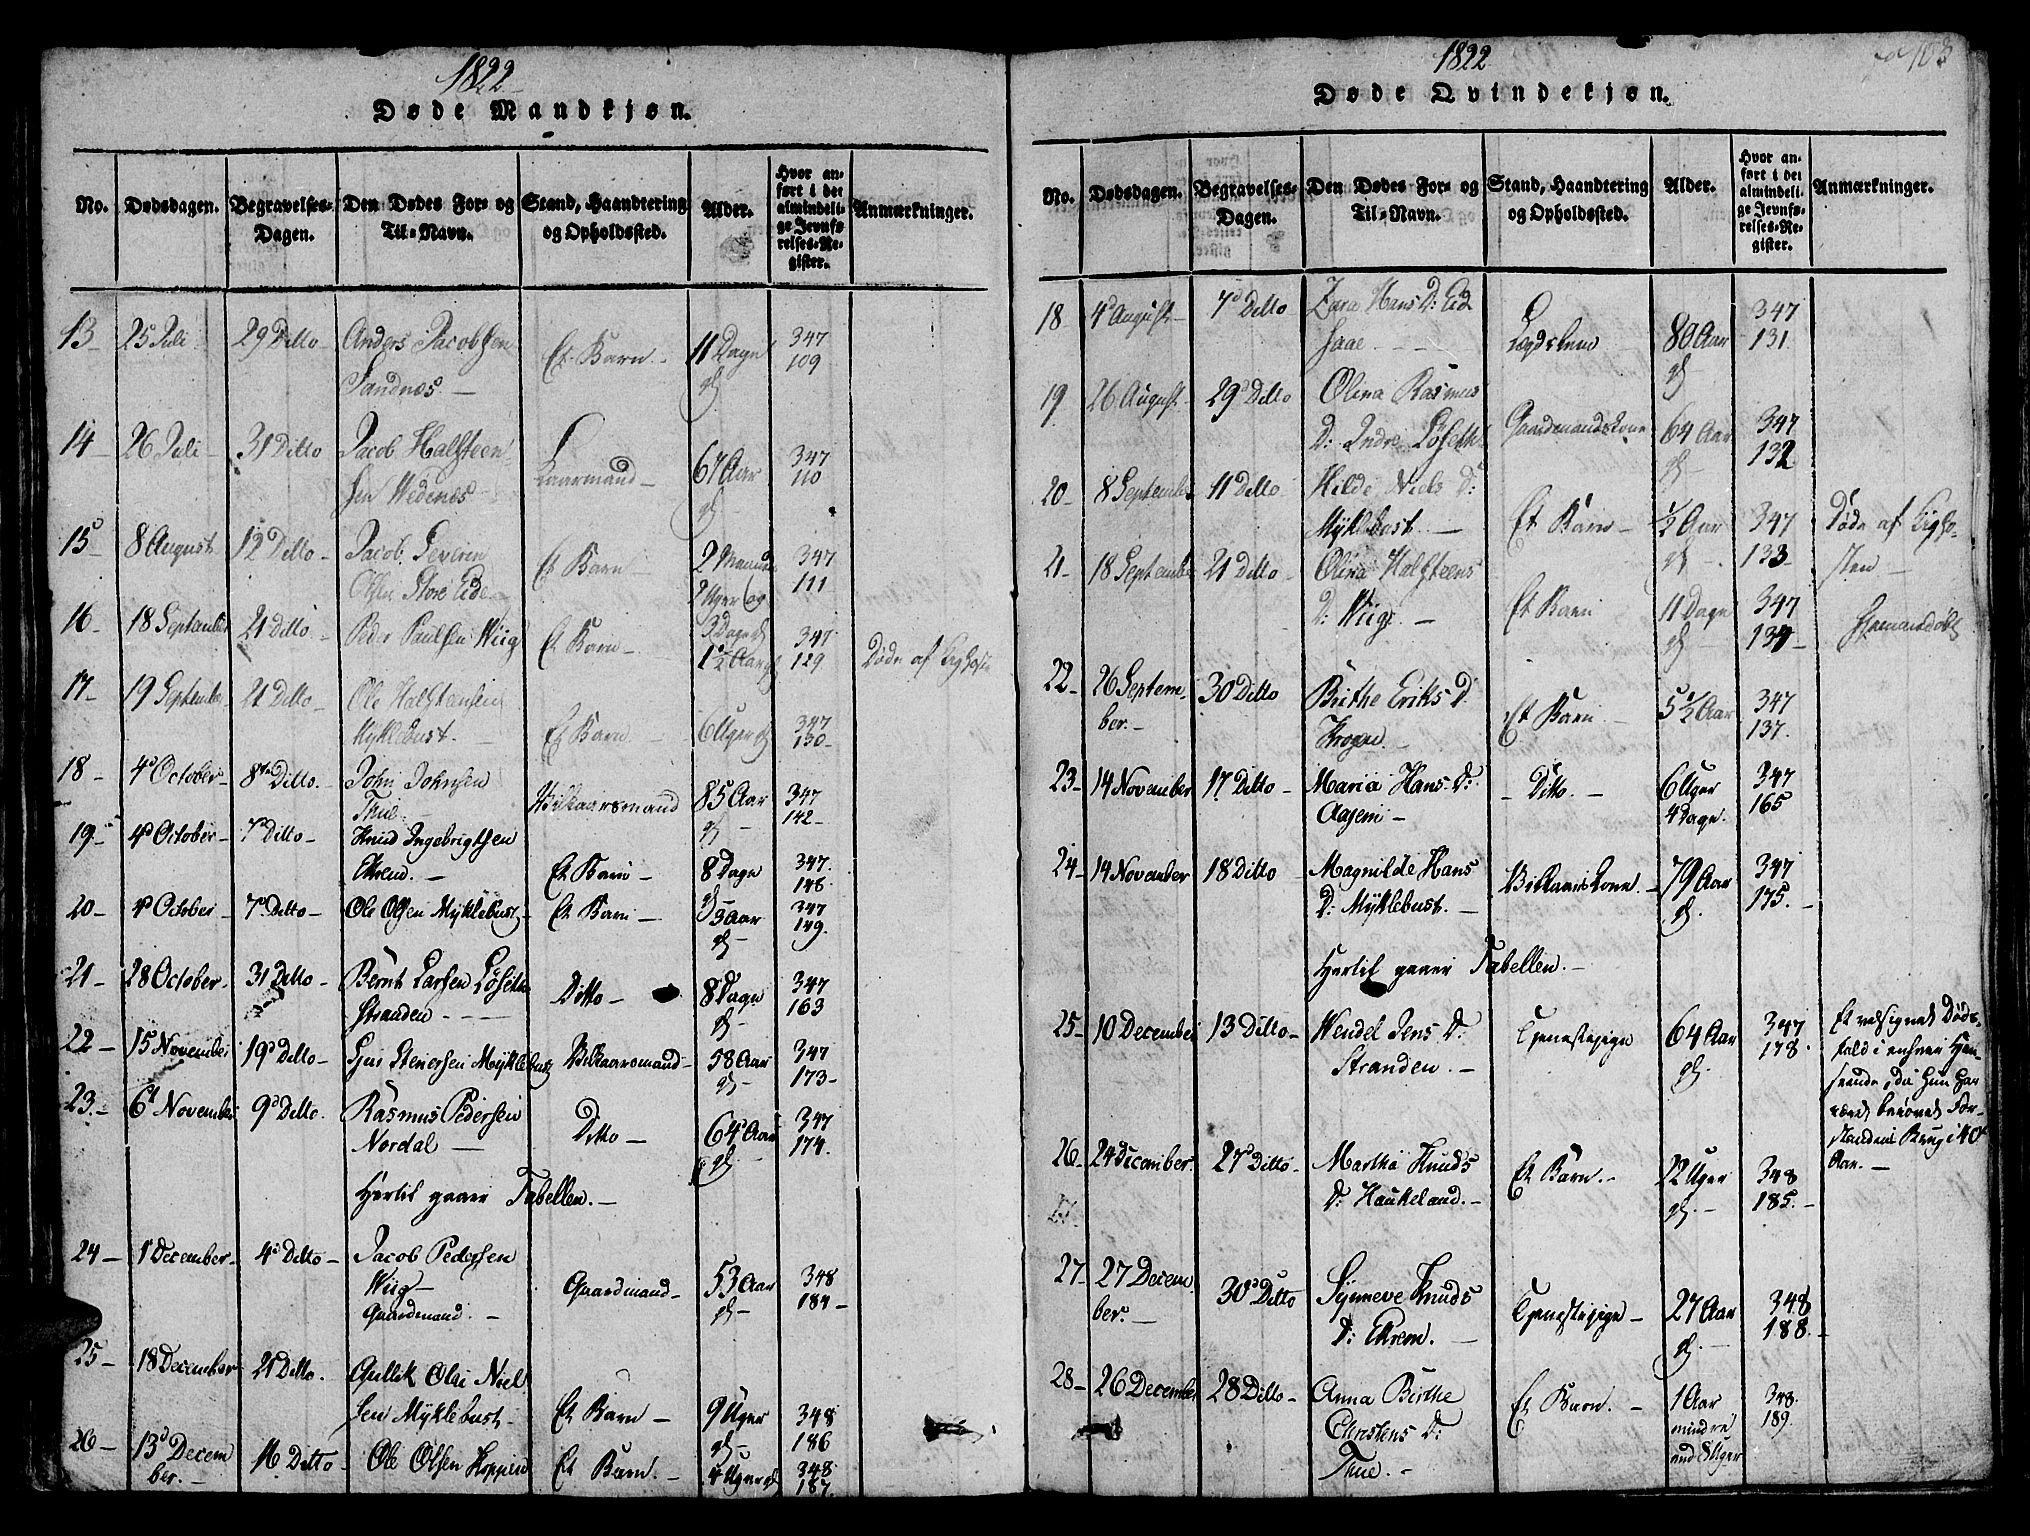 1822
Døde Mandkjøn.
No. Dødsdagen. Begravelses-Dagen. Den Dødes For- og Til-Navn. Stand, Haandtering og Opholdssted. Alder. Hvor anført i det almindelige Jevnførelses-Register. Anmærkninger.
13 25 Juli 29 Ditto Anders Jacobsen Sandnes. Et Barn 11 Dage 347 109
14 26 Juli 31 Ditto Jacob Halsteensen Wedenes 67 Aar 347 110
15 8 August 12 Ditto Jacob Severin Olsen Store Eide Et Barn 2 Maaneder 2 Uger og 3 Dage 347 111
16 18 September 21 Ditto Peder Paulsen Wiig Et Barn 1½ Aar 347 129 Døde af
17 19 September 21 Ditto Ole Halstensen Myklebust. Et Barn 6 Uger 347 130
18 4d October 8de Ditto. John Johnsen Vilkaarsmand 85 Aar 347 142
19 4d October 7d Ditto Knud Ingebrigtsen Ekrem. Et Barn 8 Dage 347. 146
20 4d October 7d Ditto Ole Olsen Myklebust Et Barn 3 Aar 347 149.
21 28 October 31 Ditto Bernt Larsen Løseth Stranden Ditto 8 Dage 347 163
22 15 November 19d Ditto Stenersen Myklebust Vilkaarsmand 58 Aar 347 173
23. 6d November 9d Ditto. Rasmus Pedersen Nordal Ditto 64 Aar 347 174.
Hertil gaaer Tabellen.
24 1 December 4d Ditto Jacob Pedersen Wiig Gaardmand. Gaardmand 53 Aar 348 184
25 18 December 21 Ditto. Gullik Olai Nielsen Myklebust Et Barn 9 Uger 348 186
26 13d December. 16 Ditto Ole Olsen Hoppen Et Barn. 4 Uger 348 187.
1822
103
Døde Qvindekjøn.
No. Dødsdagen. Begravelses-Dagen. Den Dødes For- og Til-Navn. Stand, Haandtering og Opholdssted. Alder. Hvor anført i det almindelige Jevnførelses-Register. Anmærkninger.
18 4d August 7d Ditto Zara Hans D: Eid 80 Aar 347 131
19 26 August 29d Ditto Olina Rasmus D: Indre Løseth Gaardmandskone 64 Aar 347 132
20 8 September 11 Ditto Hilde Niels D: Myklebust. Et Barn ½ Aar 347 133 Døde af
21 18 September 21 Ditto Olina Halsteens D: Wiig. Et Barn 11 Dage 347 134
22 26 September. 30 Ditto Birthe Eriks D: Krogen. Et Barn 5½ Aar 347 137.
23 14 November 17 Ditto Maria Hans D: Aasem Ditto. 6 Uger 4 Dage. 347 165
24 14 November 18 Ditto Magnilde Hans D: Myklebust. Vilkaarskone. 79 Aar 347 175.
Hertil gaaer Tabellen.
25 10 December 13 Ditto Wendel Jens D: Stranden. Tjenestepige 64 Aar 347 178. Et velsignet Dødsfald i enhver Henseende, da hun har været berøvet Forstandens Brug i 40 Aar.
26 24 December. 27d Ditto. Martha Knuds D: Haukeland. Et Barn. 22 Uger 348 185.
27 27 December. 30d Ditto Synneve Knuds D: Ekrem. Tjenestepige 27 Aar 348 188.
28 26 December 28 Ditto Anna Birthe Christens D: Et Barn. 1 Aar mindre end 8 Uger 348. 189.